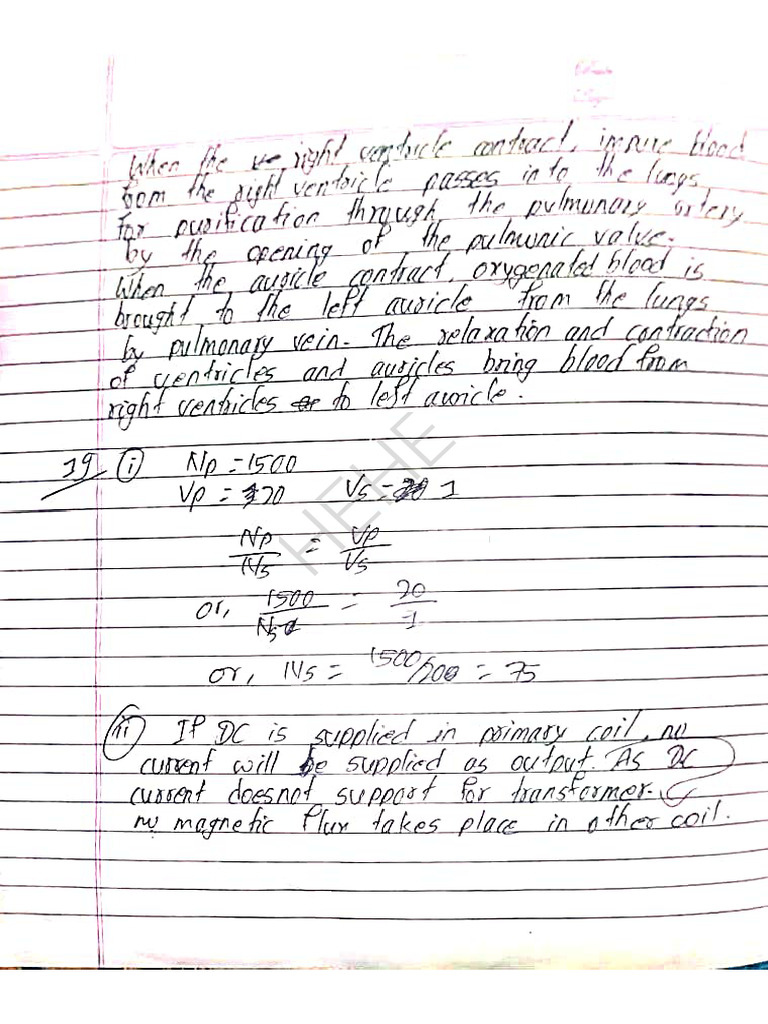 When the right ventricle contract, impure blood
from the right ventricle passes into the lungs
for purification through the pulmonary artery
by the opening of the pulmunic valve.
When the auricle contract, oxygenated blood is
brought to the left auricle from the lungs
by pulmonary vein. The relaxation and contraction
of ventricles and auricles bring blood from
right ventricles to left auricle.
19 (i) Np = 1500
Vp = 20 Vs = 1
Np/Ns = Vp/Vs
or, 1500/Ns = 20/1
or, Ns = 1500/20 = 75
(ii) If DC is supplied in primary coil, no
current will be supplied as output. As DC
current doesnot support for transformer.
no magnetic flux takes place in other coil.
HEHE